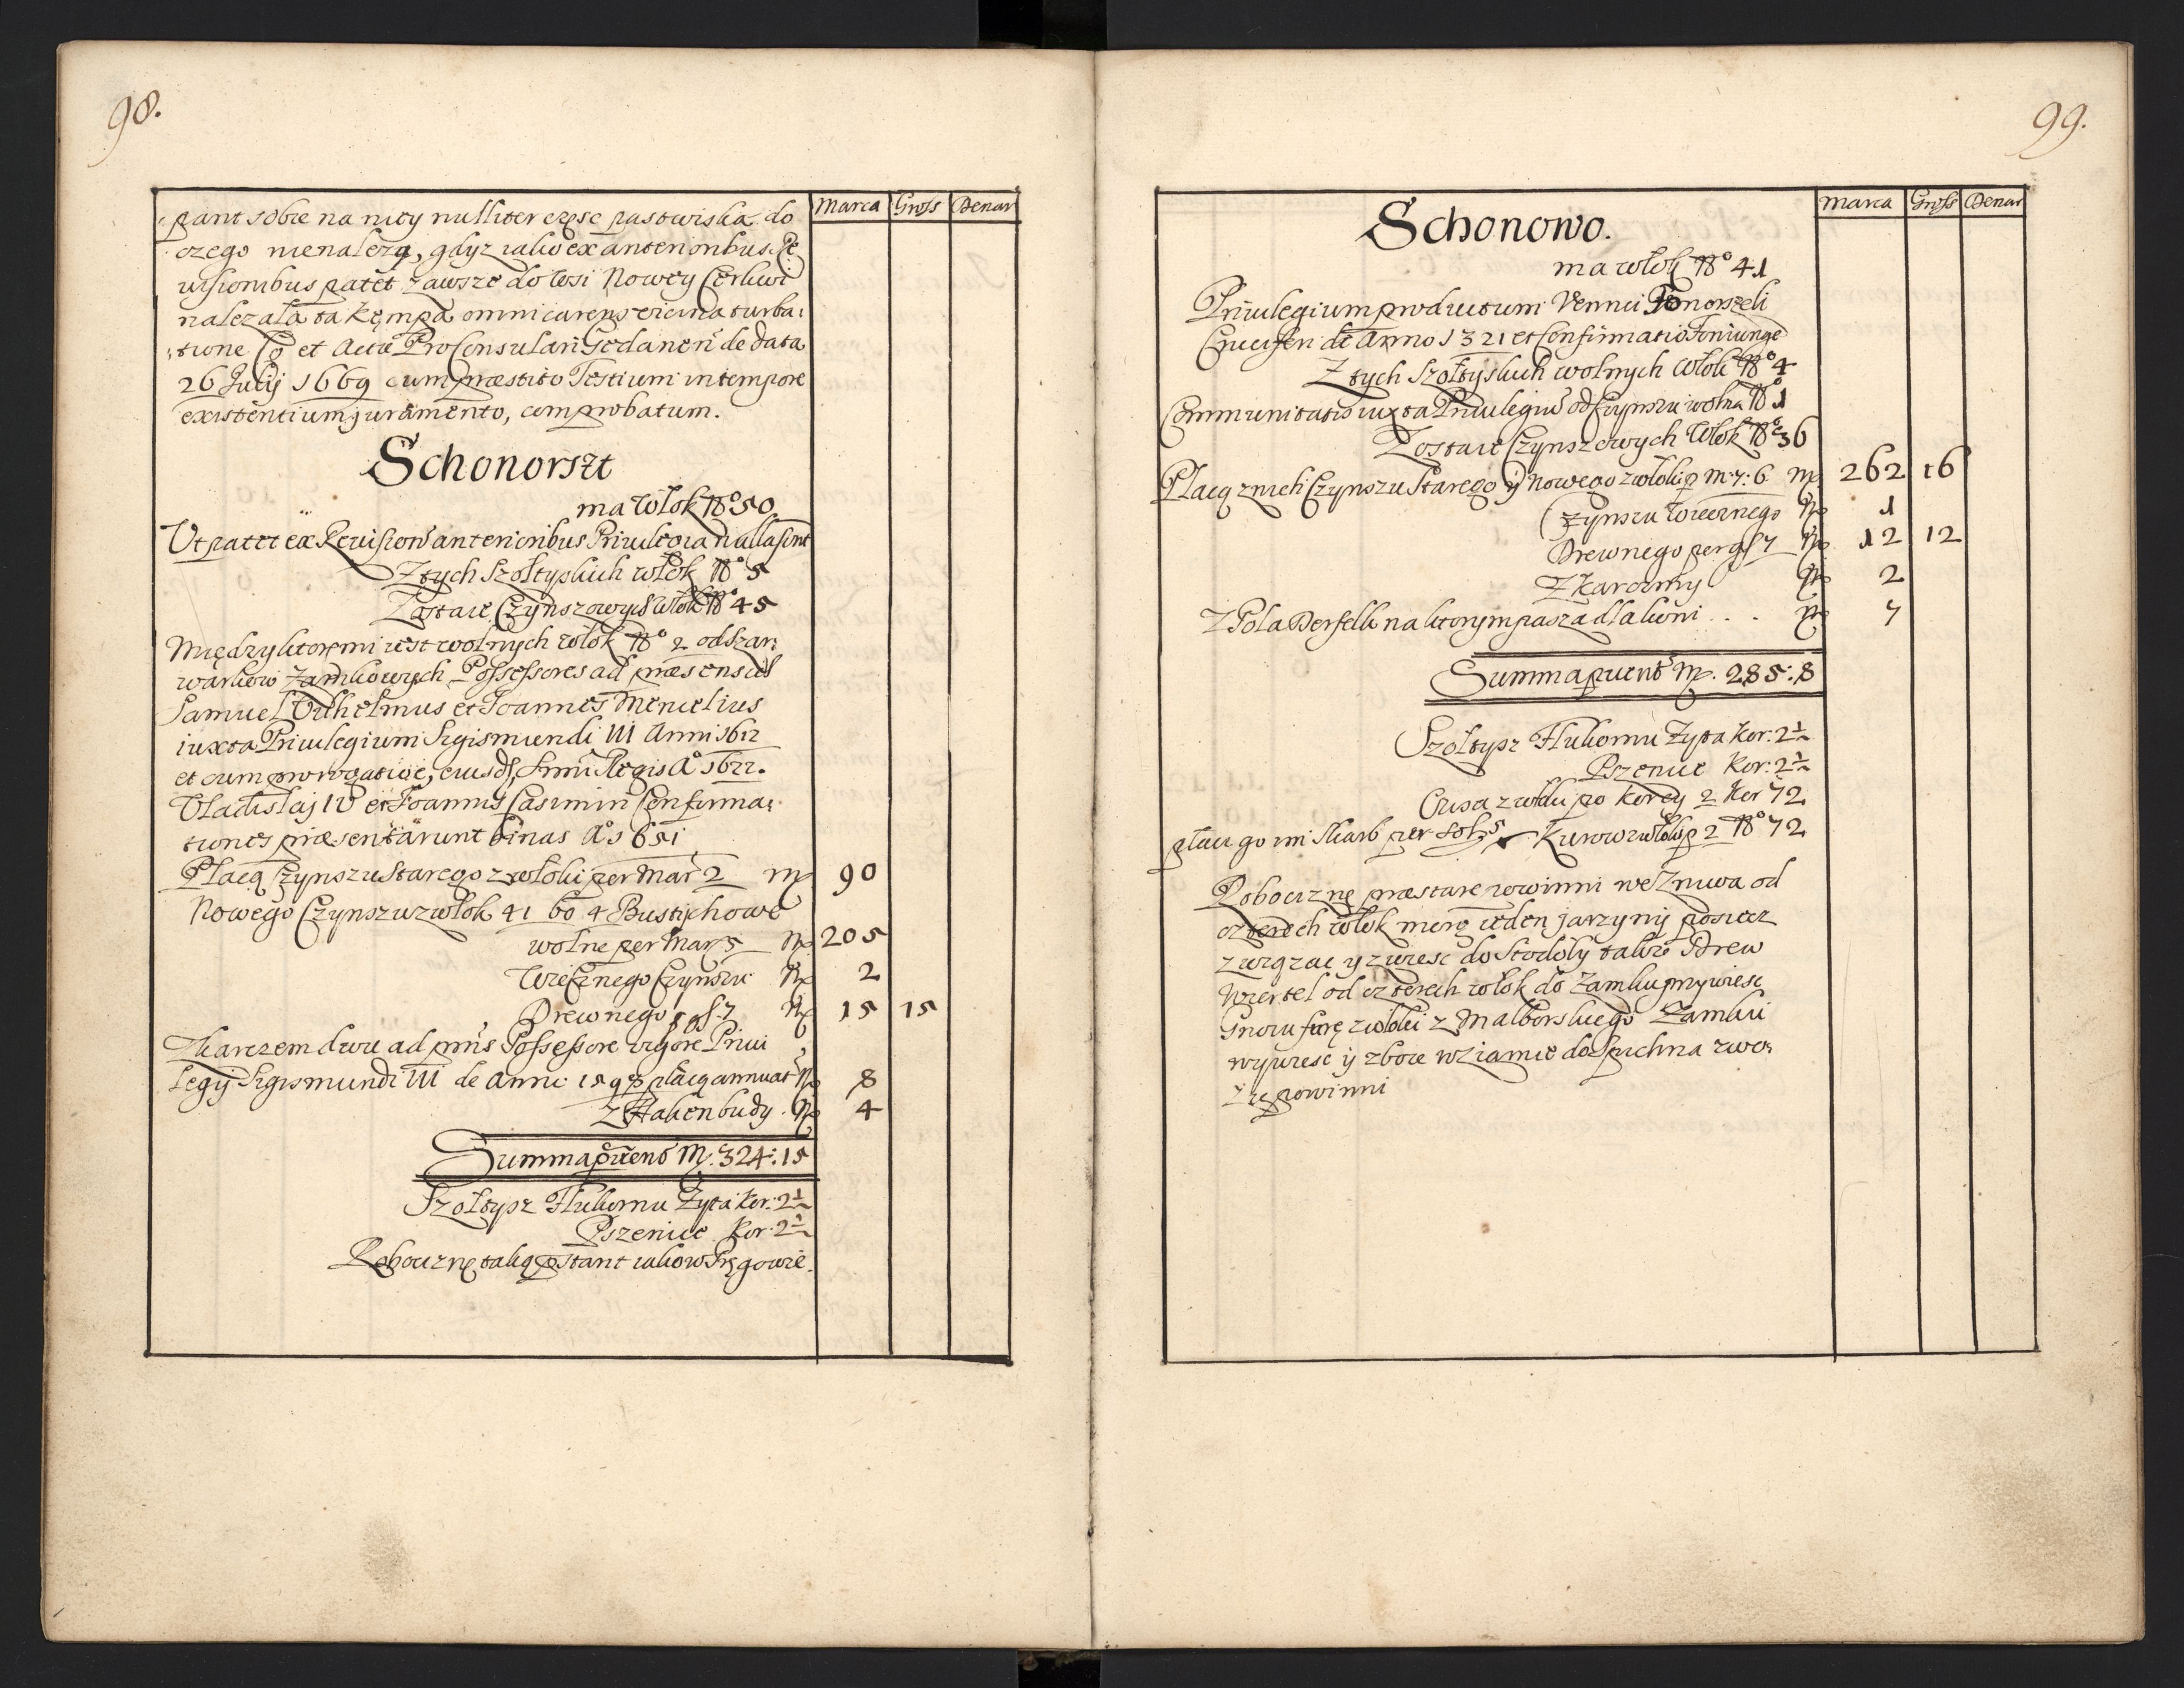 98.
Marca Gross Denar
pant sobie na niey nulliter część pastwiska do
czego nienależą, gdyz iako ex anterioribus Re
uisionibus patet zawsze do wsi Nowey Cerkwi
należała ta Kępa omni carens vicina turba:
tione et Actu ProConsulari Gedanen de data
26 Julij 1669 cum præstito Testium in tempore
existentium juramento, comprobatum.
Schonorszt
ma Włok No 50
Ut patet ex Reuision anterioribus Priuilegia nulla sunt
Z tych Szołtyskich włok No 5
Zostaie Czynszowych Włok No 45
Między ktoremi iest wolnych włok No 2 od Szar:
warkow Zamkowych Possessores ad præsens
Samuel Wilhelmus et Joannes Mencelius
iuxta Priuilegium Sigismundi III Anni 1612
et cum prorogatione, eiusd, Regis Ao 1622.
Vladislaj IV et Joannis Casimiri Confirma:
tiones præsentarunt binas Ao 1651
Płacą Czynszu Starego z włoki per Mar 2 m 90
Nowego Czynszu z włok 41 bo 4 Bustychowe
wolne per Mar 5 m 205
Wiecznego Czynszu m 2
Drewnego p gs. 7 m 15 15
Z karczem dwu ad Possessore vigore Priui
legij Sigismundi III de Anni 1597 płacą annuat m 8
Z Hakenbudy m 4
Summa prouent M. 324: 15
Szołtysz Flukornu Zyta Kor: 2½
Pszenice Kor: 2½
Roboczne taką pstant iako w
99.
Marca Gross Denar
Schonowo.
ma włok No 41
Priuilegium productum Venrici
Crucifen de Anno 1321 et Confirmatio
Z tych Szołtyskich wolnych Włok No 4
Communitatis iuxta Priuilegiu od Czynszu wolna No 1
Zostaie Czynszowych Włok No 36
Płacą z nich Czynszu Starego y Nowego z włoki p m: 7: 6 m 262 16
Czynszu Wiecznego m 1
Drewnego per gs 7 m 12 12
Z Karczmy m 2
Z Pola na ktorym pasza dla koni . . m 7
Summa prouent M. 285: 8
Szołtysz Flukornu Zyta Kor: 2½
Pszenice Kor: 2½
Owsa z włoki po korcy 2 Kor 72
płaci go im Skarb per sols 5 Kurow z włoki p 2 No 72
Roboczne præstare powinni we Zniwa od
czterech włok morg ieden jarzyny posiecz
związac y zwiesc do Stodoły także Drew
Wiertel od czterech włok do Zamku przywiesc
Gnoiu furę z włoki z Malborskiego Zamku
wywiesc y zboie wziamie do Spichna zwo:
zic powinni